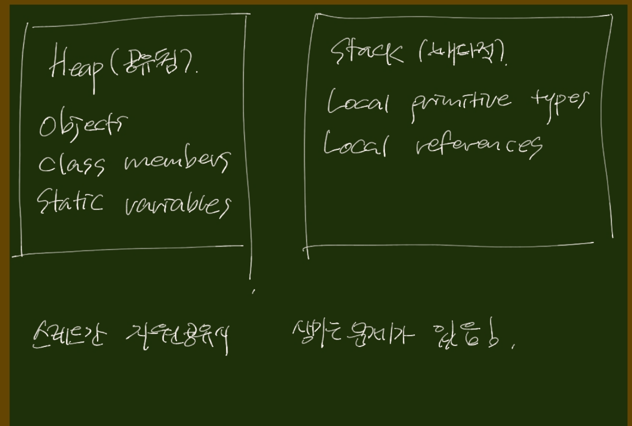 Heap (공유됨).
Objects
Class members
Static variables
Stack (배타적).
Local primitive types
Local references
스레드간 자원공유시 생기는 문제가 있음!